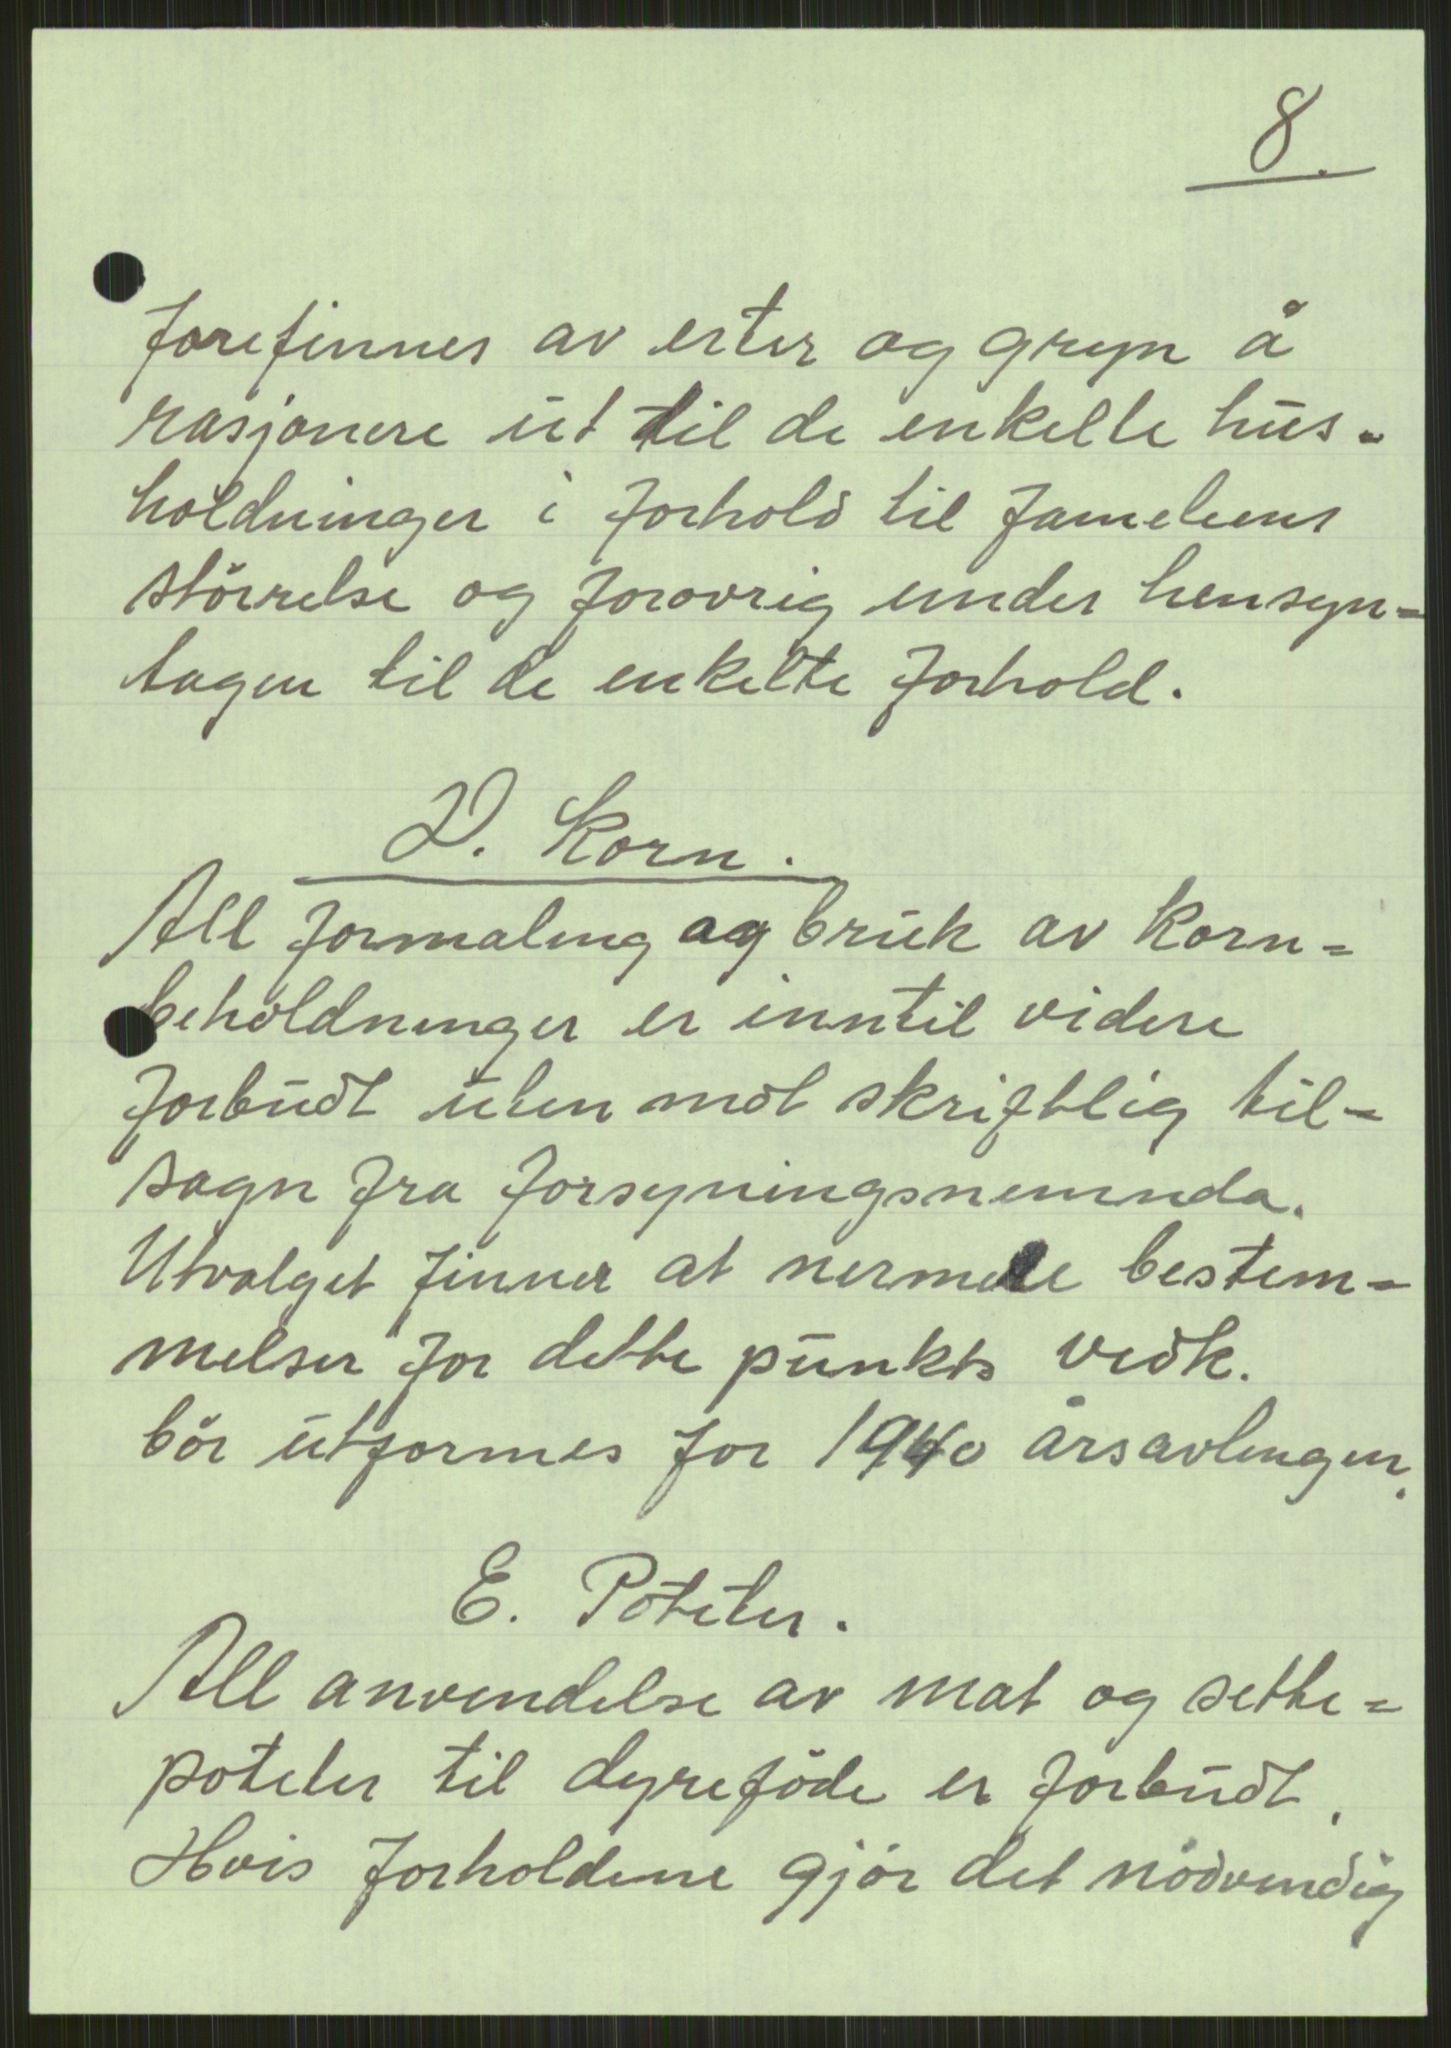 8.
forefinnes av erter og gryn å
rasjonere ut til de enkelte hus-
holdninger i forhold til fameliens
störrelse og forøvrig under hensyn-
tagen til de enkelte forhold.
D. Korn.
All formaling og bruk av korn-
beholdninger er inntil videre
forbudt uten mot skriftlig til-
sagn fra forsyningsnemnda.
Utvalget finner at nermere bestem-
melser for dette punkts vedk.
bör utformes for 1940 årsavlingen.
E. Poteter.
All anvendelse av mat og sette-
poteter til dyreföde er forbudt.
Hvis forholdene gjör det nödvendig